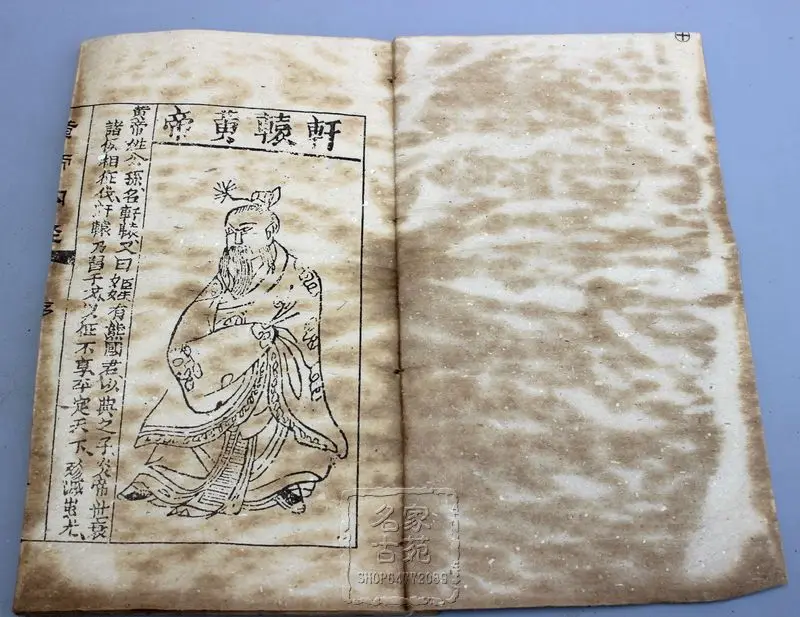 軒轅黃帝
黄帝姓公孫名軒轅又曰姬有熊國君少典之子炎帝世衰
諸侯相征伐軒轅乃習于戈以征不享平定天下殄滅蚩尤
黃帝內經
序
名家
古苑
SHOP64772085